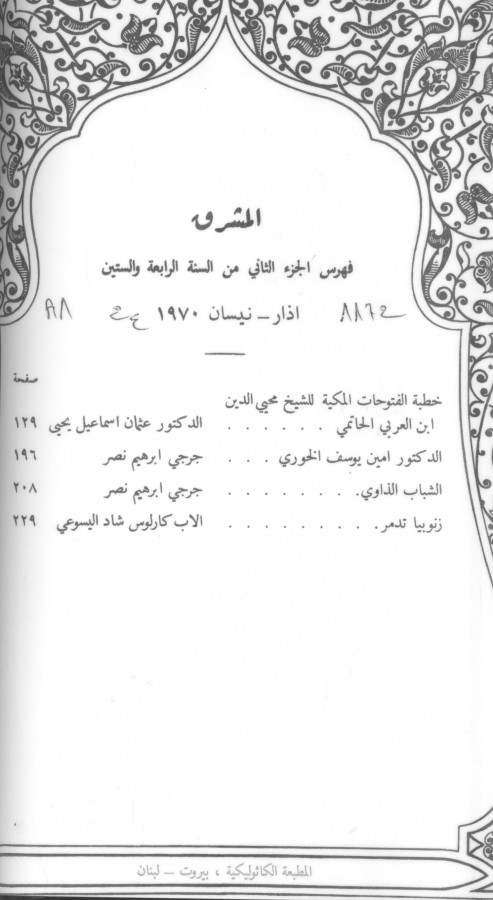 المشرق
فهرس الجزء الثاني من السنة الرابعة والستين
اذار – نيسان ١٩٧٠
صفحة
خطبة الفتوحات المكية للشيخ محيي الدين
ابن العربي الحاتمي . . . . . . الدكتور عثمان اسماعيل يحيى ١٢٩
الدكتور امين يوسف الخوري . . . جرجي ابرهيم نصر ١٩٦
الشباب الذاوي . . . . . . . . جرجي ابرهيم نصر ٢٠٨
زنوبيا تدمر . . . . . . . . . الاب كارلوس شاد اليسوعي ٢٢٩
المطبعة الكاثوليكية ، بيروت – لبنان